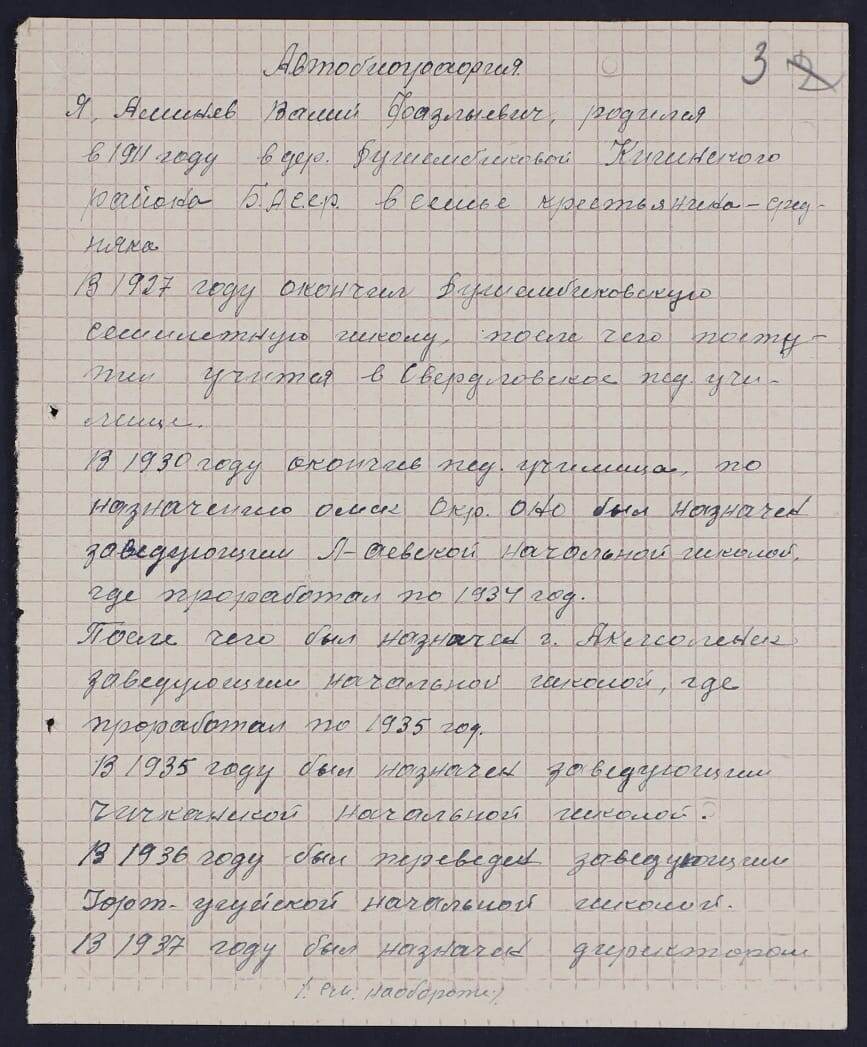 Автобиография.
3 2
Я, Аминев Валий Фазлыевич, родился
в 1911 году в дер. Душембиковой Кигинского
района Б.АС.С.Р. в семье крестьянина – серед-
няка
В 1927 году окончил Душембиковскую
семилетнюю школу, после чего посту-
пил учится в Свердловское пед. учи-
лище.
В 1930 году окончив пед. училища, по
назначению омск Окр. ОНО был назначен
заведующим начальной школой,
где проработал по 1934 год.
После чего был назначен г. Акмолинск
заведующим начальной школой, где
проработал по 1935 год.
В 1935 году был назначен заведующим
Чичканской начальной школой.
В 1936 году был переведен заведующим
начальной школой.
В 1937 году был назначен директором
/. см. наоборот./